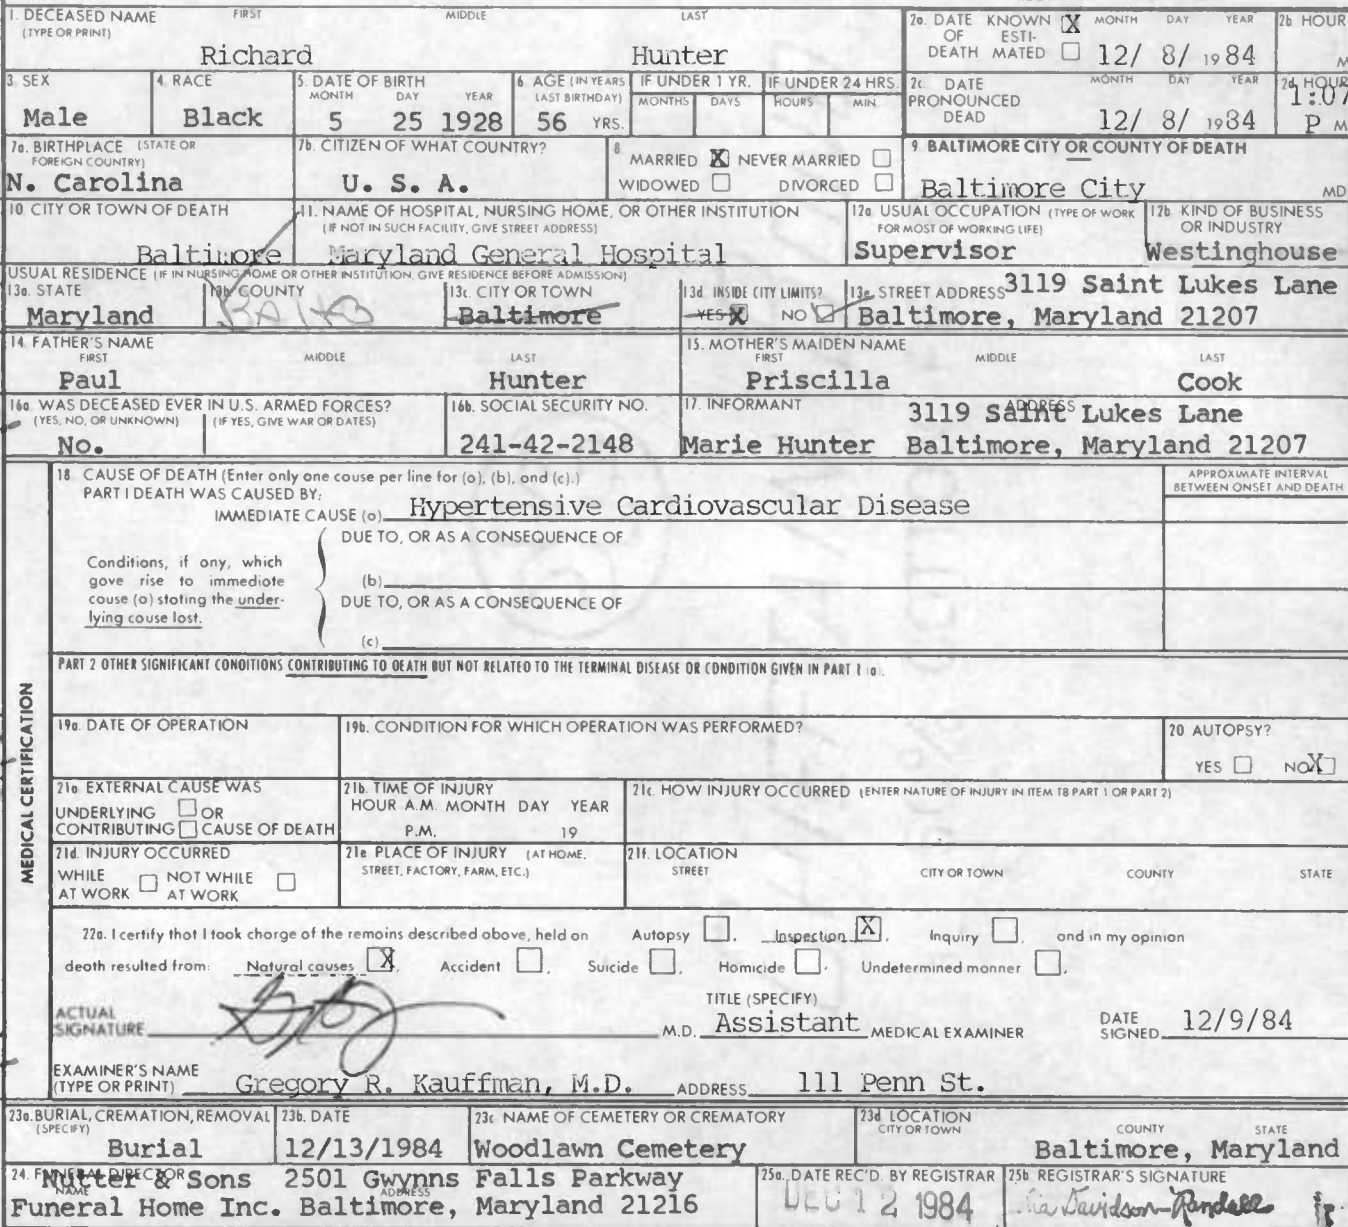 1. DECEASED NAME FIRST MIDDLE LAST
(TYPE OR PRINT)
Richard Hunter
2a. DATE KNOWN X MONTH DAY YEAR
OF ESTI-
DEATH MATED 12/ 8/ 1984
2b HOUR
M
3. SEX
Male
4. RACE
Black
5. DATE OF BIRTH
MONTH DAY YEAR
5 25 1928
6. AGE (IN YEARS
LAST BIRTHDAY)
56 YRS.
IF UNDER 1 YR.
MONTHS DAYS
IF UNDER 24 HRS.
HOURS MIN
2c. DATE MONTH DAY YEAR
PRONOUNCED
DEAD 12/ 8/ 1984
2d HOUR
1:07
P M
7a. BIRTHPLACE (STATE OR
FOREIGN COUNTRY)
N. Carolina
7b. CITIZEN OF WHAT COUNTRY?
U. S. A.
8
MARRIED X NEVER MARRIED
WIDOWED DIVORCED
9 BALTIMORE CITY OR COUNTY OF DEATH
Baltimore City MD
10 CITY OR TOWN OF DEATH
Baltimore
11. NAME OF HOSPITAL, NURSING HOME, OR OTHER INSTITUTION
(IF NOT IN SUCH FACILITY, GIVE STREET ADDRESS)
Maryland General Hospital
12a USUAL OCCUPATION (TYPE OF WORK
FOR MOST OF WORKING LIFE)
Supervisor
12b KIND OF BUSINESS
OR INDUSTRY
Westinghouse
USUAL RESIDENCE (IF IN NURSING HOME OR OTHER INSTITUTION, GIVE RESIDENCE BEFORE ADMISSION)
13a. STATE
Maryland
13b. COUNTY
BALTO
13c. CITY OR TOWN
Baltimore
13d. INSIDE CITY LIMITS?
YES X NO
13e. STREET ADDRESS 3119 Saint Lukes Lane
Baltimore, Maryland 21207
14 FATHER'S NAME
FIRST MIDDLE LAST
Paul Hunter
15. MOTHER'S MAIDEN NAME
FIRST MIDDLE LAST
Priscilla Cook
16a. WAS DECEASED EVER IN U.S. ARMED FORCES?
(YES, NO, OR UNKNOWN) (IF YES, GIVE WAR OR DATES)
No.
16b. SOCIAL SECURITY NO.
241-42-2148
17. INFORMANT ADDRESS
3119 Saint Lukes Lane
Marie Hunter Baltimore, Maryland 21207
MEDICAL CERTIFICATION
18. CAUSE OF DEATH (Enter only one couse per line for (o), (b), ond (c).)
PART I DEATH WAS CAUSED BY:
IMMEDIATE CAUSE (o) Hypertensive Cardiovascular Disease
APPROXIMATE INTERVAL
BETWEEN ONSET AND DEATH
DUE TO, OR AS A CONSEQUENCE OF
Conditions, if ony, which
gove rise to immediote
couse (o) stoting the under-
lying couse lost.
(b)
DUE TO, OR AS A CONSEQUENCE OF
(c)
PART 2 OTHER SIGNIFICANT CONDITIONS CONTRIBUTING TO DEATH BUT NOT RELATED TO THE TERMINAL DISEASE OR CONDITION GIVEN IN PART 1 (o).
19a. DATE OF OPERATION
19b. CONDITION FOR WHICH OPERATION WAS PERFORMED?
20 AUTOPSY?
YES NO X
21a EXTERNAL CAUSE WAS
UNDERLYING OR
CONTRIBUTING CAUSE OF DEATH
21b. TIME OF INJURY
HOUR A.M. MONTH DAY YEAR
P.M. 19
21c. HOW INJURY OCCURRED (ENTER NATURE OF INJURY IN ITEM 18 PART 1 OR PART 2)
21d. INJURY OCCURRED
WHILE NOT WHILE
AT WORK AT WORK
21e PLACE OF INJURY (AT HOME,
STREET, FACTORY, FARM, ETC.)
21f. LOCATION
STREET CITY OR TOWN COUNTY STATE
22a. I certify that I took chorge of the remoins described obove, held on Autopsy , Inspection X , Inquiry , ond in my opinion
deoth resulted from: Noturol couses X , Accident , Suicide , Homicide , Undetermined monner ,
ACTUAL
SIGNATURE
M.D.
TITLE (SPECIFY)
Assistant MEDICAL EXAMINER
DATE
SIGNED 12/9/84
EXAMINER'S NAME
(TYPE OR PRINT) Gregory R. Kauffman, M.D. ADDRESS 111 Penn St.
23a. BURIAL, CREMATION, REMOVAL
(SPECIFY)
Burial
23b. DATE
12/13/1984
23c NAME OF CEMETERY OR CREMATORY
Woodlawn Cemetery
23d LOCATION
CITY OR TOWN COUNTY STATE
Baltimore, Maryland
24. FUNERAL DIRECTOR
NAME ADDRESS
Nutter & Sons 2501 Gwynns Falls Parkway
Funeral Home Inc. Baltimore, Maryland 21216
25a. DATE REC'D. BY REGISTRAR
DEC 12 1984
25b REGISTRAR'S SIGNATURE
Davidson-Randall